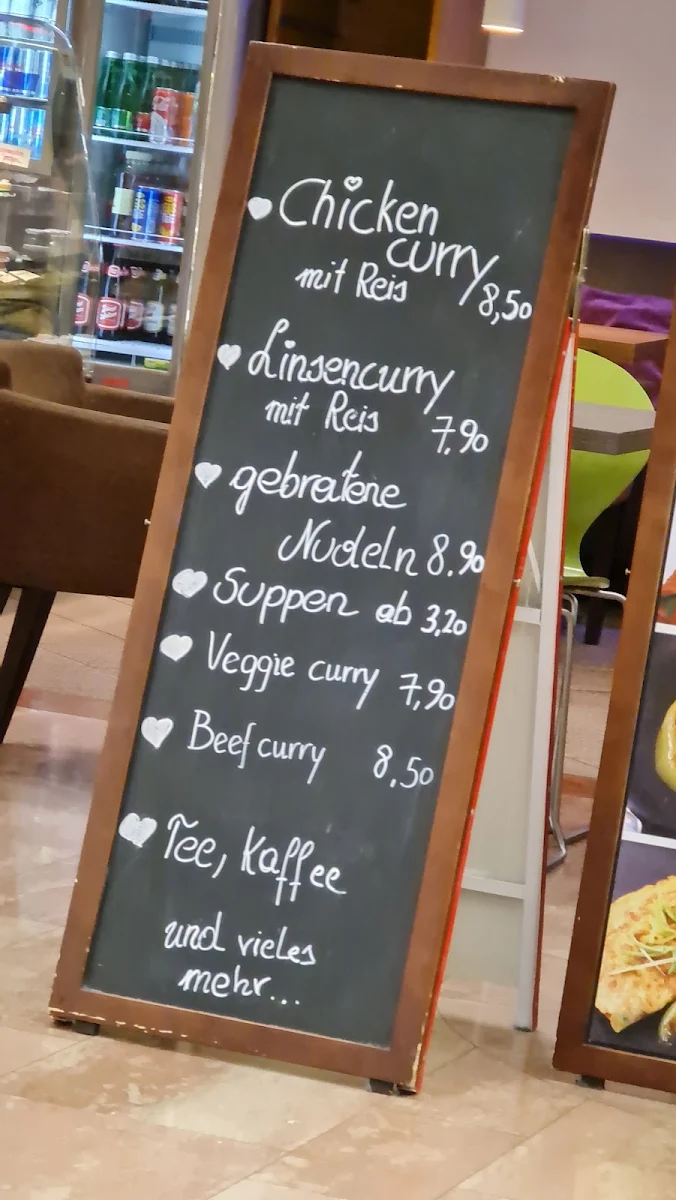 Chicken
curry
mit Reis 8,50
Linsencurry
mit Reis 7,90
gebratene
Nudeln 8.90
Suppen ab 3,20
Veggie curry 7,90
Beef curry 8,50
Tee, Kaffee
und vieles
mehr...